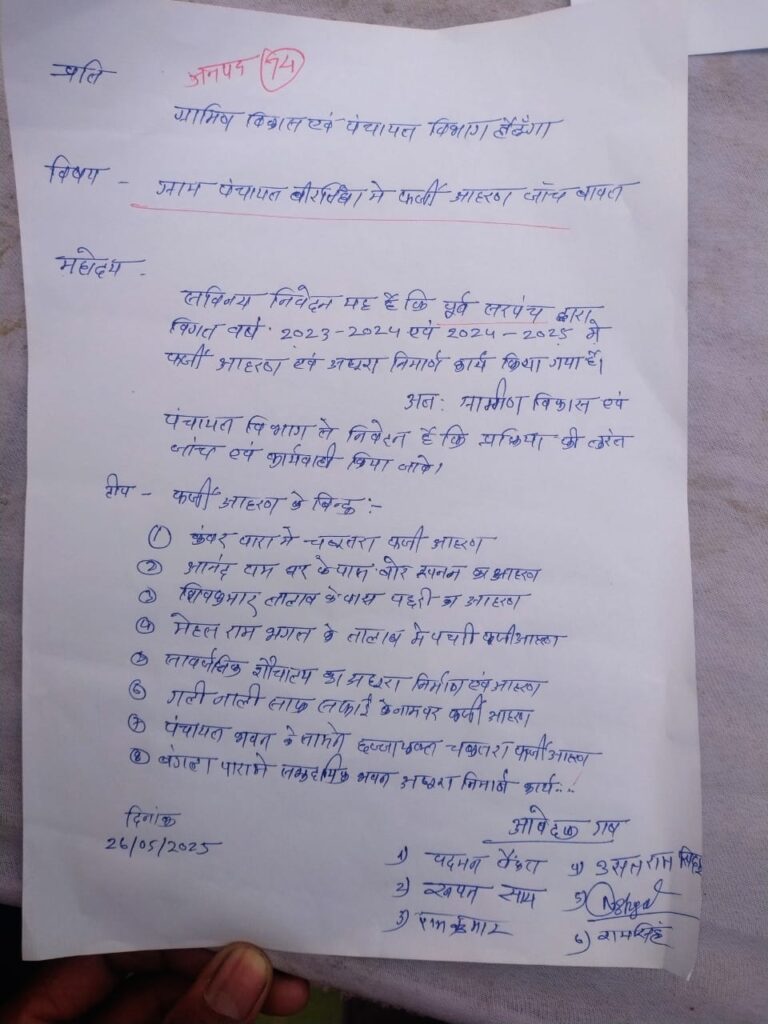 प्रति
जनपद 94
ग्रामिण विकास एवं पंचायत विभाग लैलूँगा
विषय - ग्राम पंचायत में फर्जी आहरण जाँच बाबत
महोदय -
सविनय निवेदन यह है कि पूर्व सरपंच द्वारा
विगत वर्ष 2023-2024 एवं 2024-2025 में
फर्जी आहरण एवं अधुरा निर्माण कार्य किया गया है।
अतः ग्रामीण विकास एवं
पंचायत विभाग से निवेदन है कि प्रक्रिया की तुरंत
जांच एवं कार्यवाही किया जावे।
टीप - फर्जी आहरण के बिन्दु :-
① कंवर पारा में चबुतरा फर्जी आहरण
② आनंद राम घर के पास बोर खनन का आहरण
③ शिवकुमार तालाब के पास पचरी का आहरण
④ मेहत्त राम भगत के तालाब में पचरी फर्जी आहरण
⑤ सार्वजनिक शौचालय का अधुरा निर्माण एवं आहरण
⑥ गली नाली साफ सफाई के नाम पर फर्जी आहरण
⑦ पंचायत भवन के सामने छज्जायुक्त चबुतरा फर्जी आहरण
⑧ बंगला पारा में सामुदायिक भवन अधुरा निर्माण कार्य...
दिनांक
26/05/2025
आवेदक गण
1) पदमन
2) साय
3) रामकुमार
4) राम
5)
6) रामसिंह